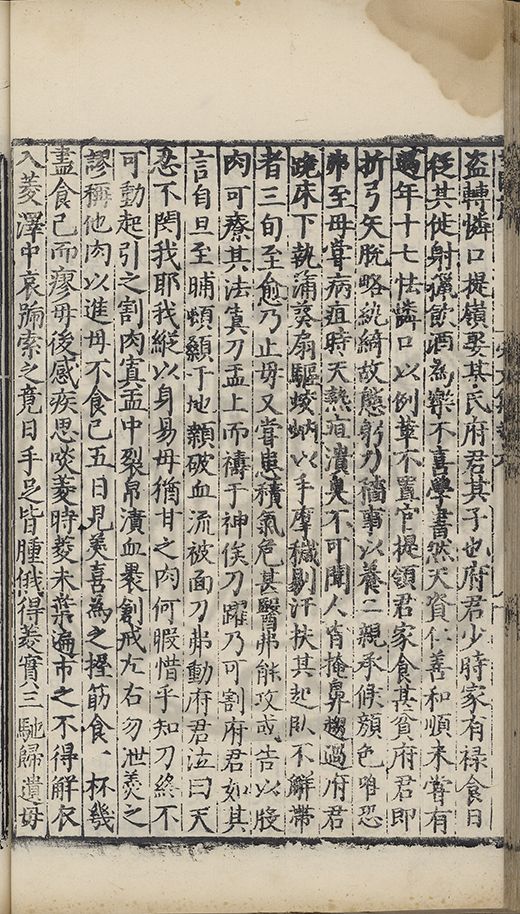 盗轉憐口提嶺娶其氏府君其子也府君少時家有禄食日
從其徒射獵飲酒為樂不喜學書然天資仁善和順未嘗有
過年十七怯憐口以例革不置官提領君家食甚貧府君即
折弓矢脫略紈綺故態躬力穡事以養二親承候顔色唯恐
弗至母嘗病疽時天熱疽潰臭不可聞人皆掩鼻趨過府君
跪床下執蒲葵扇驅蚊蚋以手摩穢剔汗扶其起臥不解帶
者三旬至愈乃止母又嘗患積氣危甚醫弗能攻或告以股
肉可療其法寘刀盂上而禱于神俟刀躍乃可割府君如其
言自旦至晡頓顙于地顙破血流被面刀弗動府君泣曰天
忍不閔我耶我縱以身易母猶甘之肉何暇惜乎知刀終不
可動起引之割肉寘盂中裂帛漬血裹創戒左右勿泄羹之
謬稱他肉以進母不食已五日見羹喜為之挃筋食一杯幾
盡食已而瘳母後感疾思啖菱時菱未葉遍市之不得解衣
入菱澤中哀號索之竟日手足皆腫俄得菱實三馳歸遺母